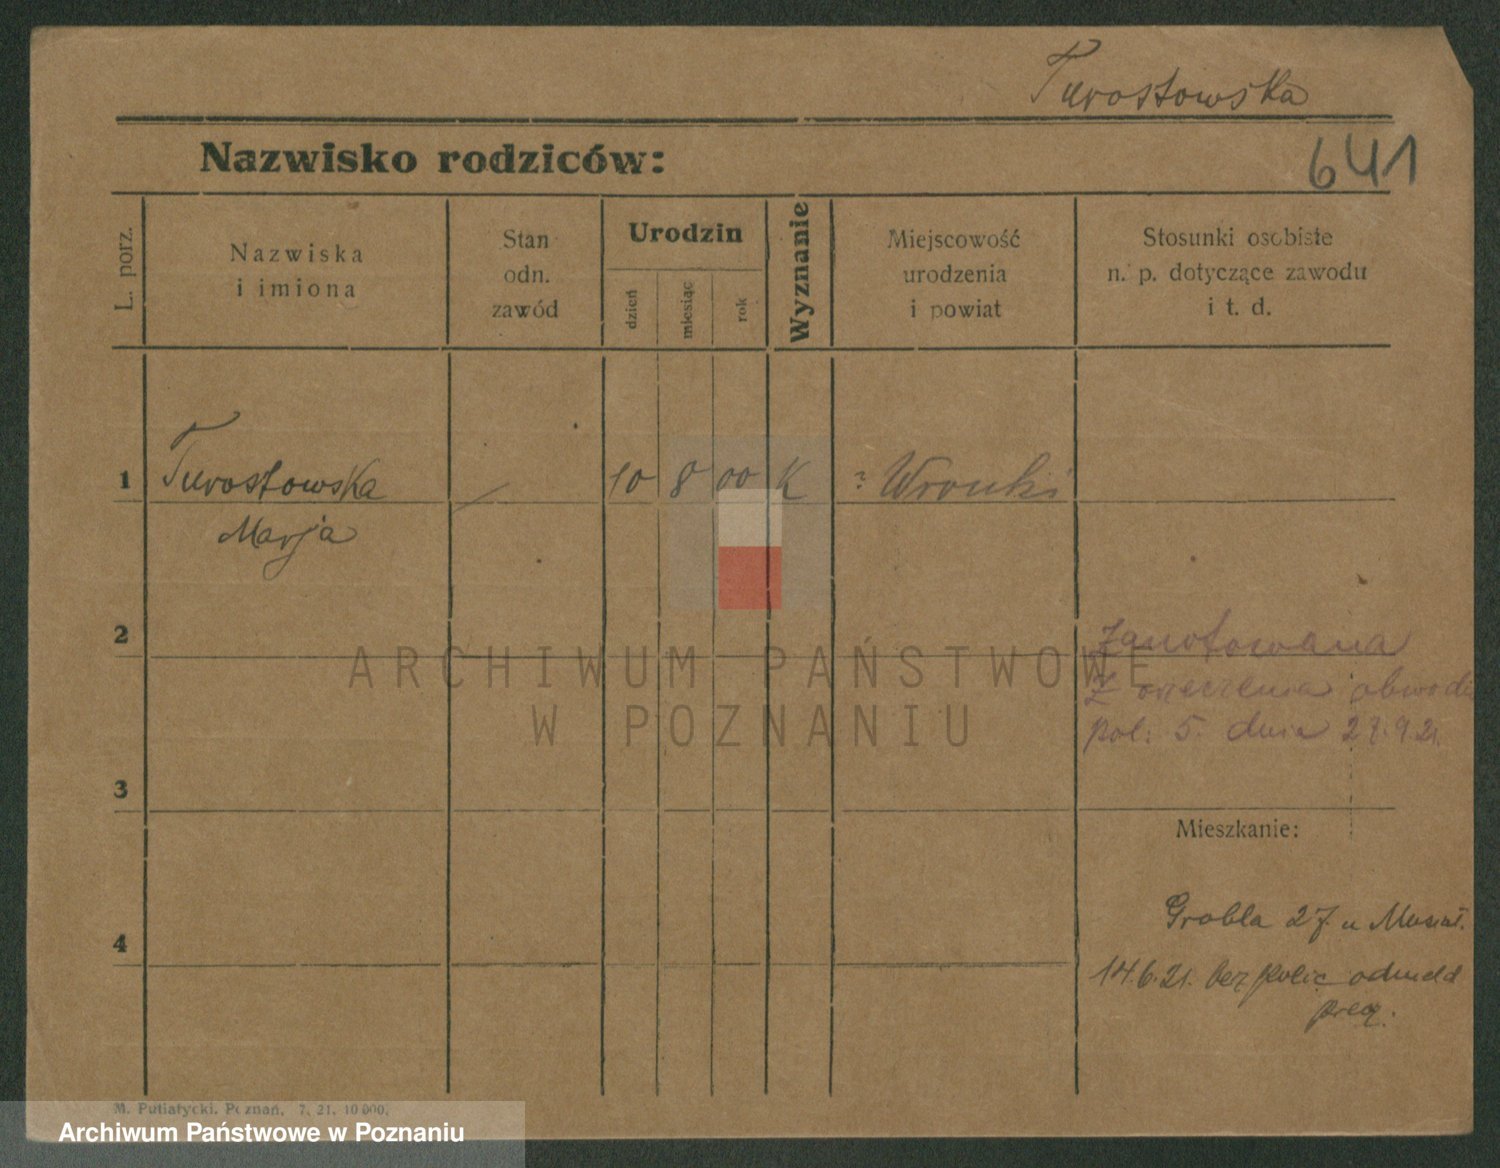 Turostowska
641
Nazwisko rodziców:
L. porz.
Nazwiska
i imiona
Stan
odn.
zawód
Urodzin
dzień
miesiąc
rok
Wyznanie
Miejscowość
urodzenia
i powiat
Stosunki osobiste
n. p. dotyczące zawodu
i t. d.
1
Turostowska
Marja
10 8 00 K
? Wronki
2
Zanotowana
Z orzeczenia obwodu
pol. 5. dnia 27.9.21.
ARCHIWUM PAŃSTWOWE
W POZNANIU
3
Mieszkanie:
Grobla 27 u
4
14.6.21. bez polic odmeld
M. Putiatycki. Poznań, 7. 21. 10 000.
Archiwum Państwowe w Poznaniu